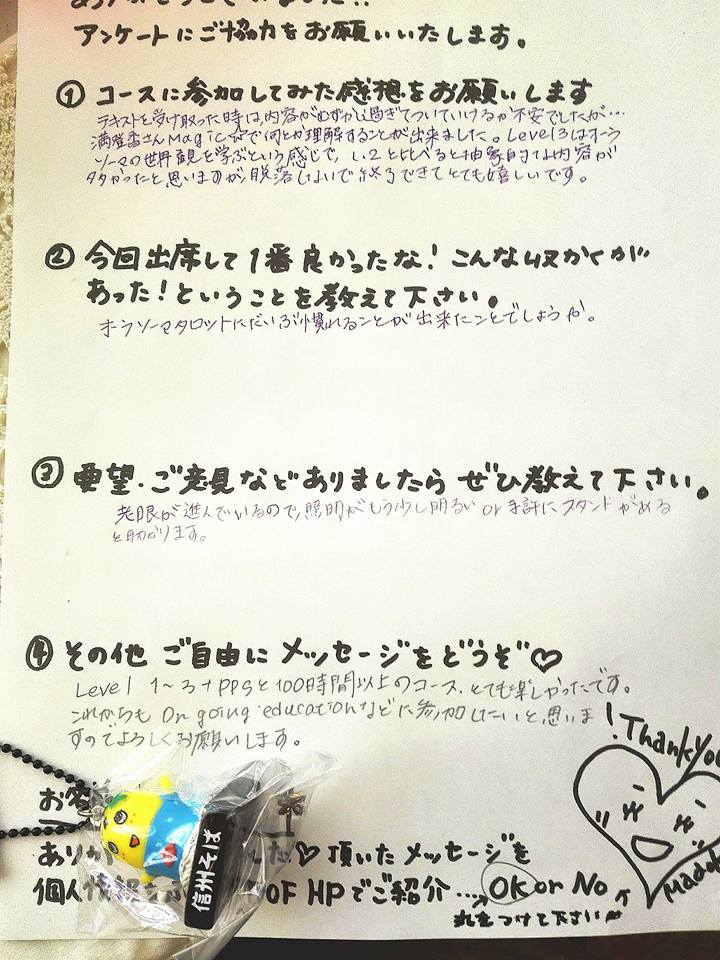 アンケートにご協力をお願いいたします。
① コースに参加してみた感想をお願いします
テキストを受け取った時は、内容がむずかし過ぎてついていけるか不安でしたが…
満登香さんMagic☆で何とか理解することが出来ました。Level3はオーラ
ソーマの世界観を学ぶという感じで、1、2と比べると抽象的な内容が
多かったと思いますが、脱落しないで終了できてとても嬉しいです。
② 今回出席して1番良かったな！こんな収かくが
あった！ということを教えて下さい。
オーラソーマタロットにだいぶ慣れることが出来たことでしょうか。
③ 要望・ご意見などありましたらぜひ教えて下さい。
老眼が進んでいるので、照明がもう少し明るい or 手許にスタンドがある
と助かります。
④ その他 ご自由にメッセージをどうぞ♡
Level 1～3+PPSと100時間以上のコース、とても楽しかったです。
これからも On going educationなどに参加したいと思いま
すのでよろしくお願いします。
! Thank you
お客
ありが した♡ 頂いたメッセージを
個人情報を OF HPでご紹介…OK or No
丸をつけて下さい
信州そば